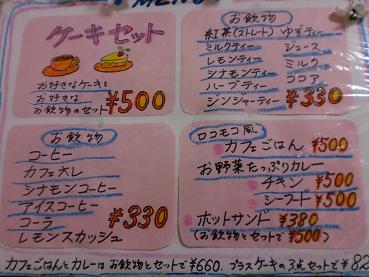 MENU
ケーキセット
お好きなケーキと
お好きな
お飲物のセット ¥500
お飲物
紅茶(ストレート) ゆずティー
ミルクティー ジュース
レモンティー ミルク
シナモンティー ココア
ハーブティー
シンジャーティー ¥330
お飲物
コーヒー
カフェオレ
シナモンコーヒー
アイスコーヒー
コーラ ¥330
レモンスカッシュ
ロコモコ風
カフェごはん ¥500
お野菜たっぷりカレー
チキン ¥500
シーフード ¥500
ホットサンド ¥380
(お飲物とセットで¥500)
カフェごはんとカレーは お飲物とセットで¥660. プラスケーキの3点セットで¥82